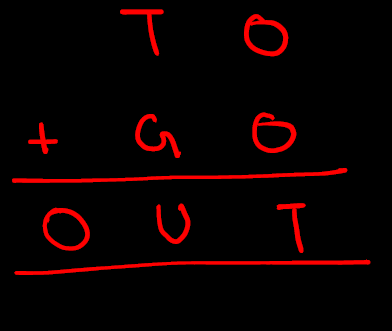 T O
+ G O
O U T